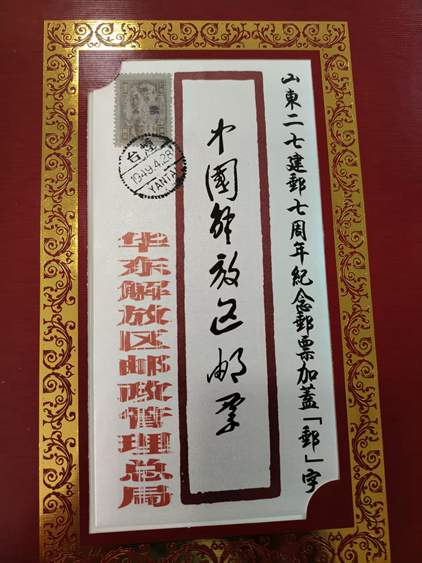 山東二七建郵七周年紀念郵票加蓋「郵」字
中國解放区邮票
华东解放区邮政管理总局
烟台
1949.4.28
YANTAI